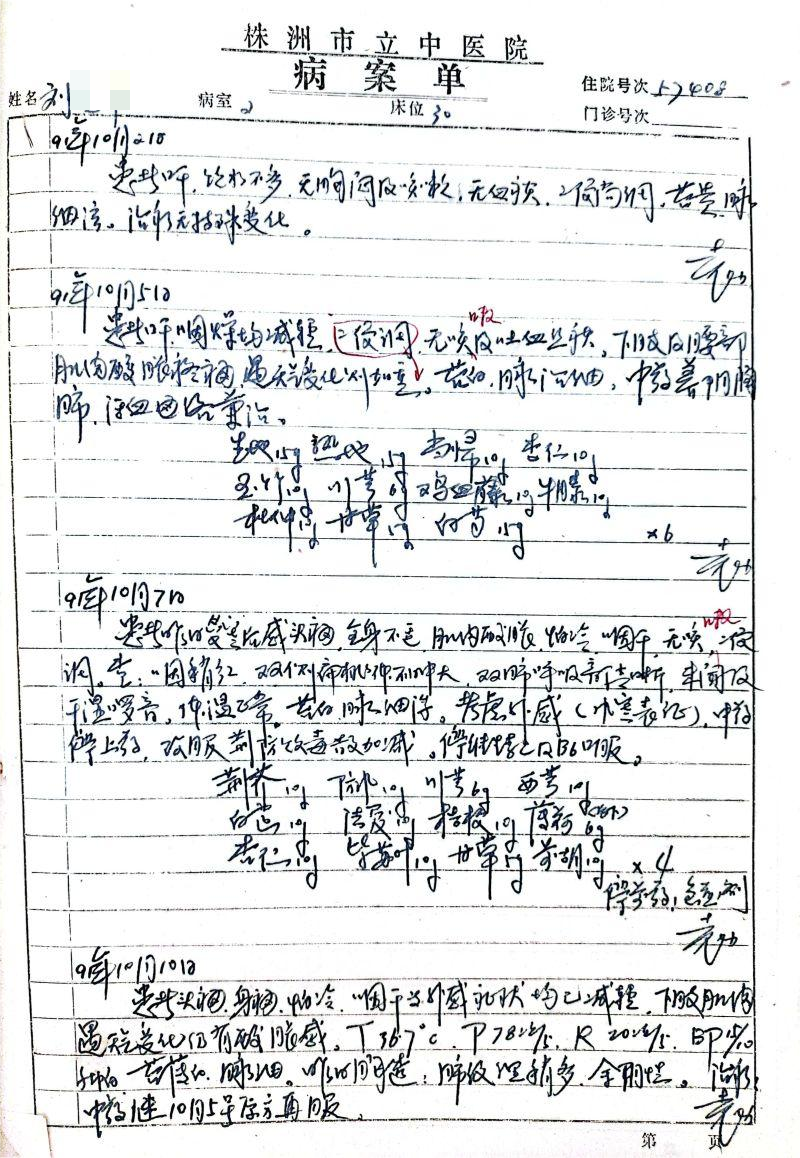 株洲市立中医院
病案单
姓名 刘 病室 2 床位 30 住院号次 57408
门诊号次
91年10月2日
患者口干,饮水不多,无胸闷及咳嗽,无血痰,二便尚调,苔黄,脉
细滑。治疗无特殊变化。
袁
91年10月5日
患者口干,咽燥均减轻,二便调,无咳嗽及吐血丝痰,下肢及腰部
肌肉酸胀疼痛,遇天气变化则加重。苔白,脉沉细,中药养阴润
肺,活血通络兼治。
生地15g 熟地15g 当归10g 杏仁10g
玉竹10g 川芎6g 鸡血藤10g 牛膝10g
杜仲15g 甘草5g 白芍15g
×6
袁
91年10月7日
患者昨晚受凉后感头痛,全身不适,肌肉酸胀,怕冷,咽干,无咳嗽,二便
调。查:咽稍红,双侧扁桃体不肿大,双肺呼吸音清晰,未闻及
干湿啰音,体温正常。苔白,脉细浮。考虑外感(风寒表证),中药
停上药,改服荆防败毒散加减。停 B6口服。
荆芥10g 防风10g 川芎6g 羌活10g
白芷10g 法夏10g 桔梗10g 薄荷6g(后下)
杏仁10g 紫苏叶10g 甘草5g 前胡10g
×4
停前药,急煎 剂
袁
91年10月10日
患者头痛,身痛,怕冷,咽干等外感症状均已减轻,下肢肌肉
遇天气变化仍有酸胀感。T 36.7°c. P 78次/分. R 20次/分. BP 15/10
苔薄白,脉细。 治疗:
中药继10月5号原方再服。
袁
第 页